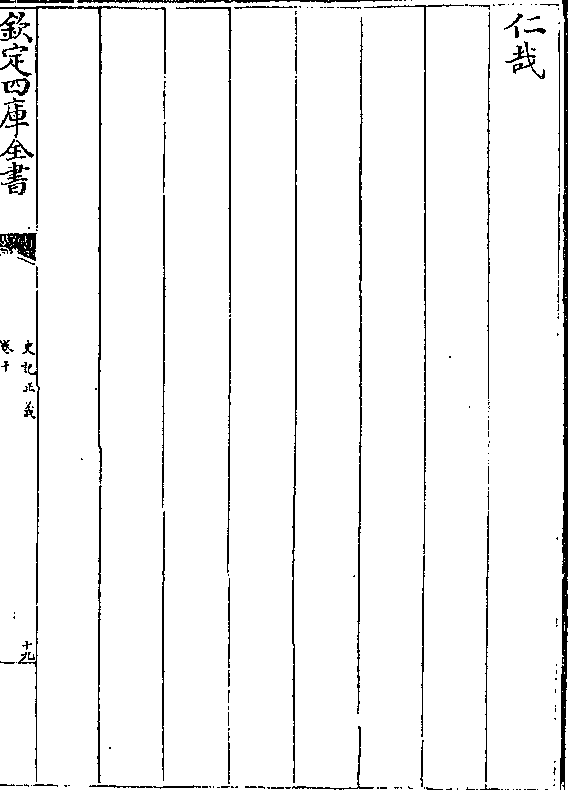 仁哉
欽定四庫全書
史記正義
卷十
十九